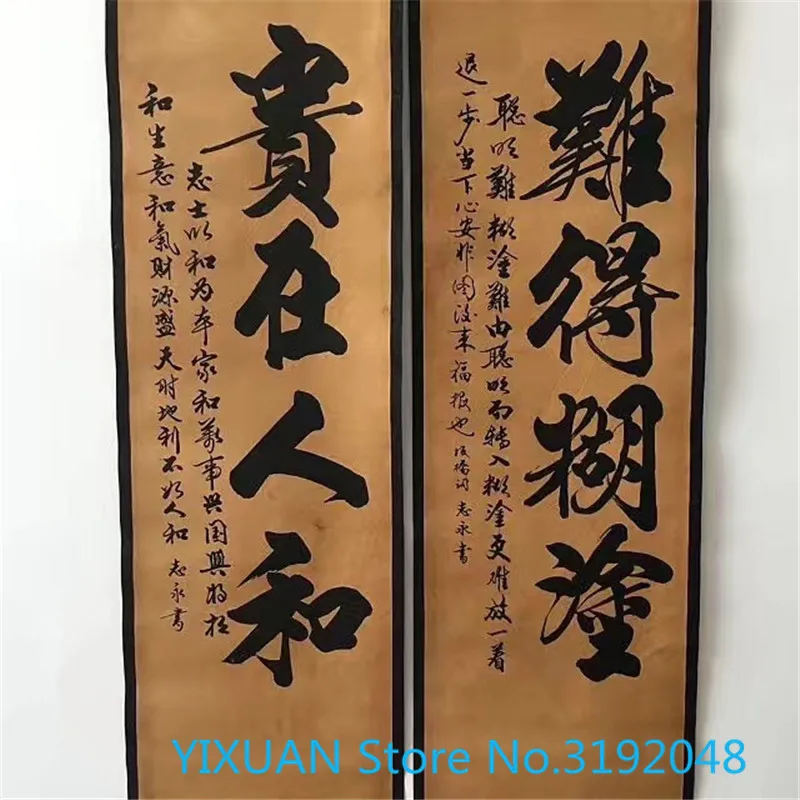 難得糊塗
聪明難糊塗難由聪明而转入糊塗更难放一着
退一步当下心安非图後来福报也 板橋词 志永書
貴在人和
志士以和为本家和萬事兴国興将相
和生意和氣財源盛天时地利不如人和 志永書
YIXUAN Store No.3192048